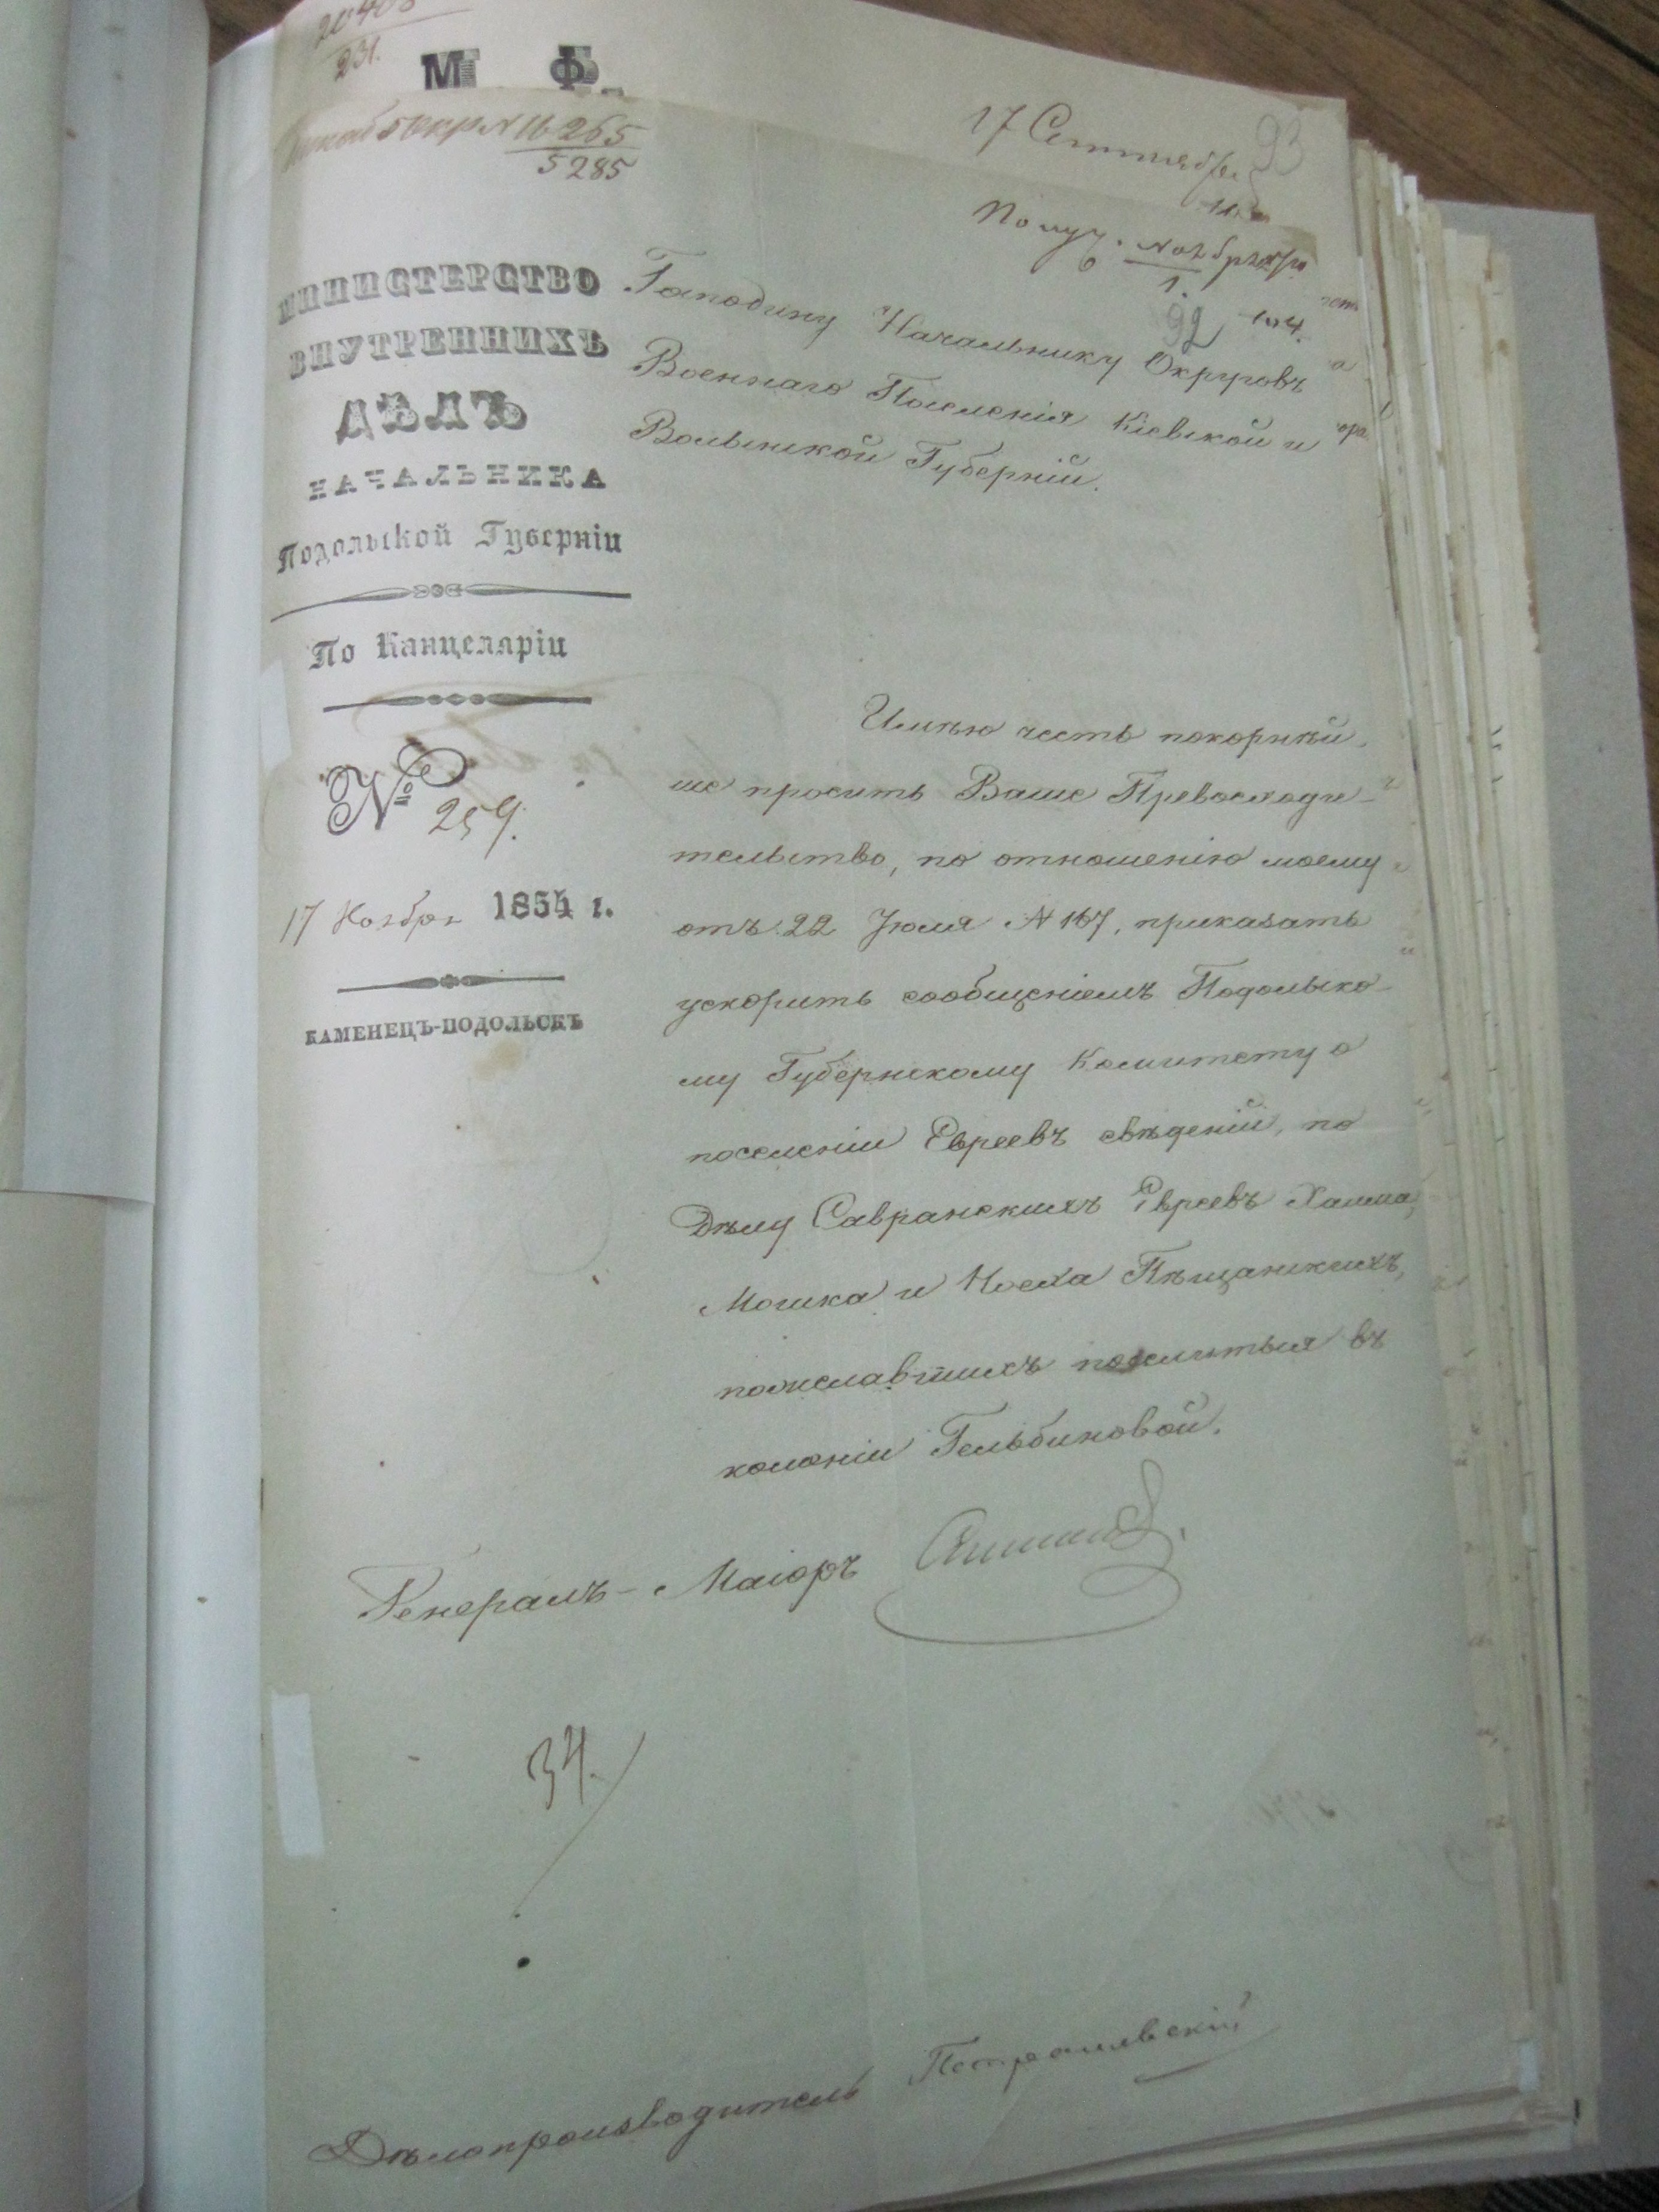 20408
231.
М Ф.
Окр N 16265
5285
17 Сентября
93
Получ. Ноября
1.
92
МИНИСТЕРСТВО
ВНУТРЕННИХЪ
ДѢЛЪ
НАЧАЛЬНИКА
Подольской Губерніи
По Канцеляріи
№ 259.
17 Ноября 1854 г.
КАМЕНЕЦЪ-ПОДОЛЬСКЪ
Господину Начальнику Округовъ
Военнаго Поселенія Кіевской и
Волынской Губерній.
Имѣю честь покорнѣй
ше просить Ваше Превосходи-
тельство, по отношенію моему
отъ 22 Іюля N 167, приказать
ускорить сообщеніемъ Подольско-
му Губернскому Комитету о
поселеніи Евреевъ свѣденій, по
Дѣлу Савранскихъ Евреевъ Хаима,
Мошка и Носха Пѣщанскихъ,
пожелавшихъ поселиться въ
колоніи Гельбиновой.
Генералъ-Маіоръ
34.
Дѣлопроизводитель